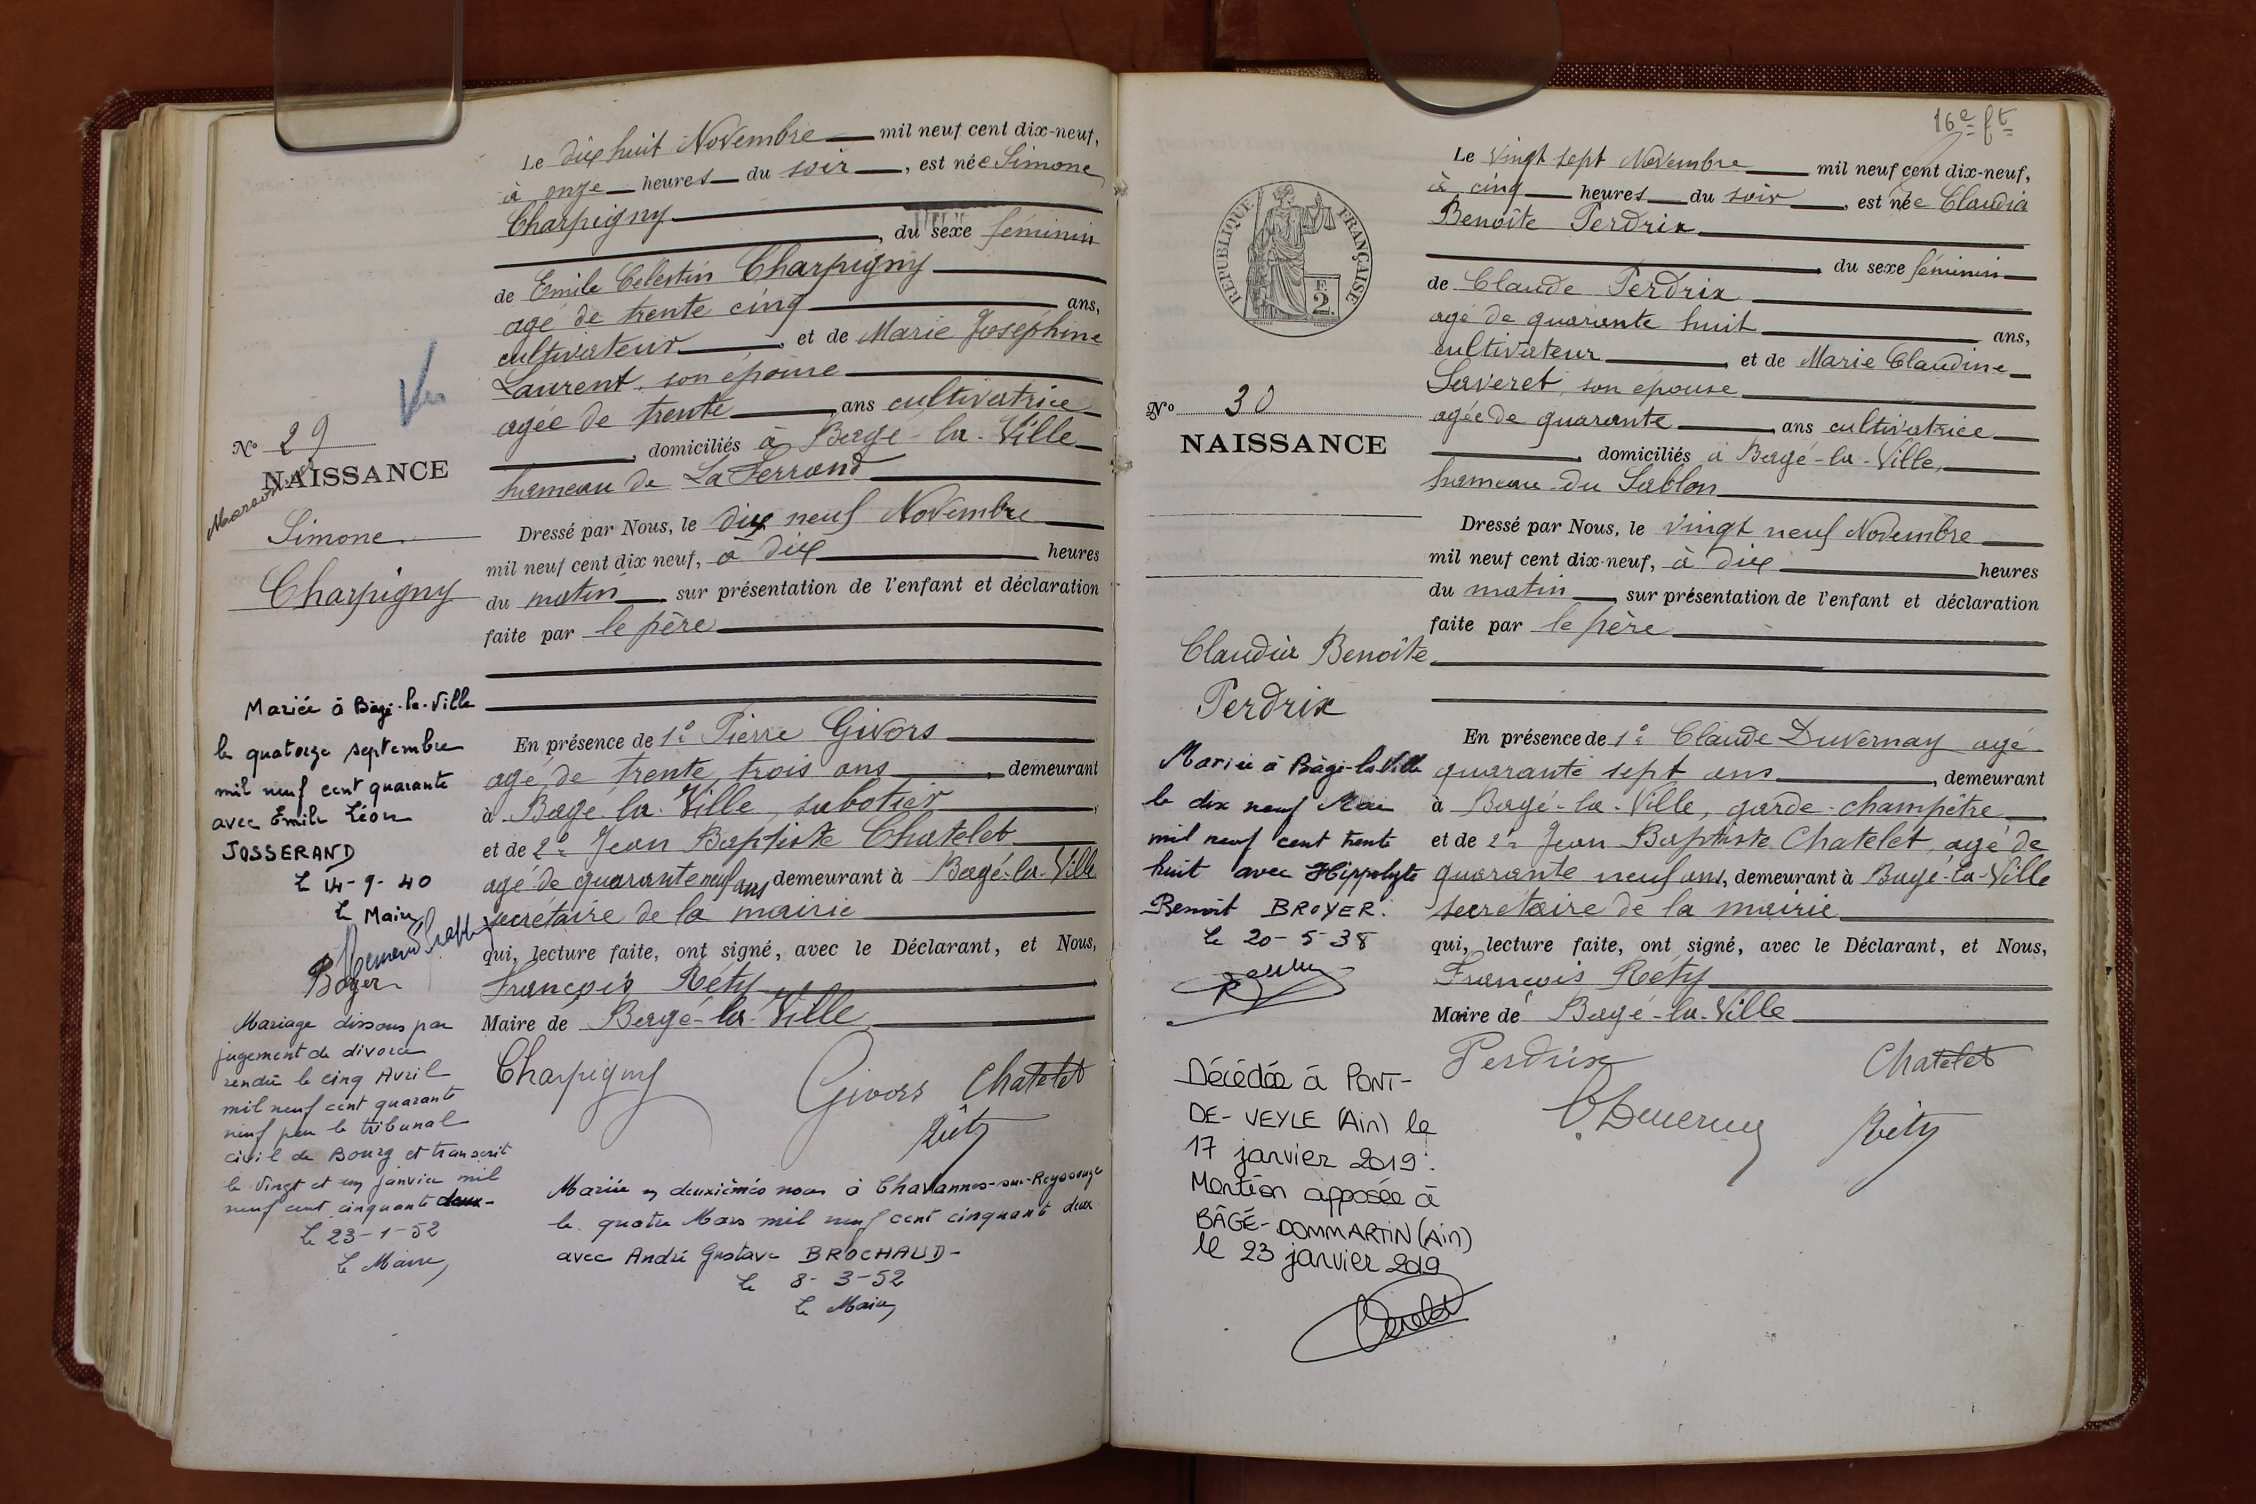 Le dix huit Novembre mil neuf cent dix-neuf,
à onze heures du soir, est née Simone
Charpigny
, du sexe féminin
de Emile Celestin Charpigny
agé de trente cinq ans,
cultivateur, et de Marie Joséphine
Laurent, son épouse
agée de trente ans cultivatrice
, domiciliés à Bagé-la-Ville
hameau de La Ferrand
Dressé par Nous, le dix neuf Novembre
mil neuf cent dix neuf, à dix heures
du matin sur présentation de l'enfant et déclaration
faite par le père
En présence de 1º Pierre Givors
agé de trente trois ans, demeurant
à Bagé-la-Ville, sabotier,
et de 2º Jean Baptiste Chatelet
agé de quarante neuf ans demeurant à Bagé-la-Ville
secrétaire de la mairie
qui, lecture faite, ont signé, avec le Déclarant, et Nous,
François Réty
Maire de Bagé-la-Ville
Charpigny Givors Chatelet
Réty
Nº 29
NAISSANCE
Simone
Charpigny
Mariée à Bâgé-la-Ville
le quatorze septembre
mil neuf cent quarante
avec Emile Léon
JOSSERAND
Le 14-9-40
Le Maire
Boyer
Mariage dissous par
jugement de divorce
rendu le cinq Avril
mil neuf cent quarante
neuf par le tribunal
civil de Bourg et transcrit
le vingt et un janvier mil
neuf cent cinquante deux-
Le 23-1-52
Le Maire,
Mariée en deuxièmes noces à Chavannes-sur-Reyssouze
le quatre Mars mil neuf cent cinquante deux
avec André Gustave BROCHAUD-
Le 8-3-52
Le Maire,
16e ft
RÉPUBLIQUE FRANÇAISE
E
2
Le vingt sept Novembre mil neuf cent dix-neuf,
à cinq heures du soir, est née Claudia
Benoîte Perdrix
, du sexe féminin
de Claude Perdrix
agé de quarante huit ans,
cultivateur, et de Marie Claudine
Saveret, son épouse
agée de quarante, ans cultivatrice
, domiciliés à Bagé-la-Ville,
hameau du Sablon
Dressé par Nous, le vingt neuf Novembre
mil neuf cent dix-neuf, à dix heures
du matin, sur présentation de l'enfant et déclaration
faite par le père
En présence de 1º Claude Duvernay agé
quarante sept ans, demeurant
à Bagé-la-Ville, garde-champêtre
et de 2º Jean Baptiste Chatelet, agé de
quarante neuf ans, demeurant à Bagé-la-Ville
secrétaire de la mairie
qui, lecture faite, ont signé, avec le Déclarant, et Nous,
François Réty
Maire de Bagé-la-Ville
Perdrix Chatelet
Réty
Nº 30
NAISSANCE
Claudia Benoîte
Perdrix
Mariée à Bâgé-la-Ville
le dix neuf Mai
mil neuf cent trente
huit avec Hippolyte
Benoît BROYER.
Le 20-5-38
Décédée à PONT-
DE-VEYLE (Ain) le
17 janvier 2019.
Mention apposée à
BÂGÉ-DOMMARTIN (Ain)
le 23 janvier 2019